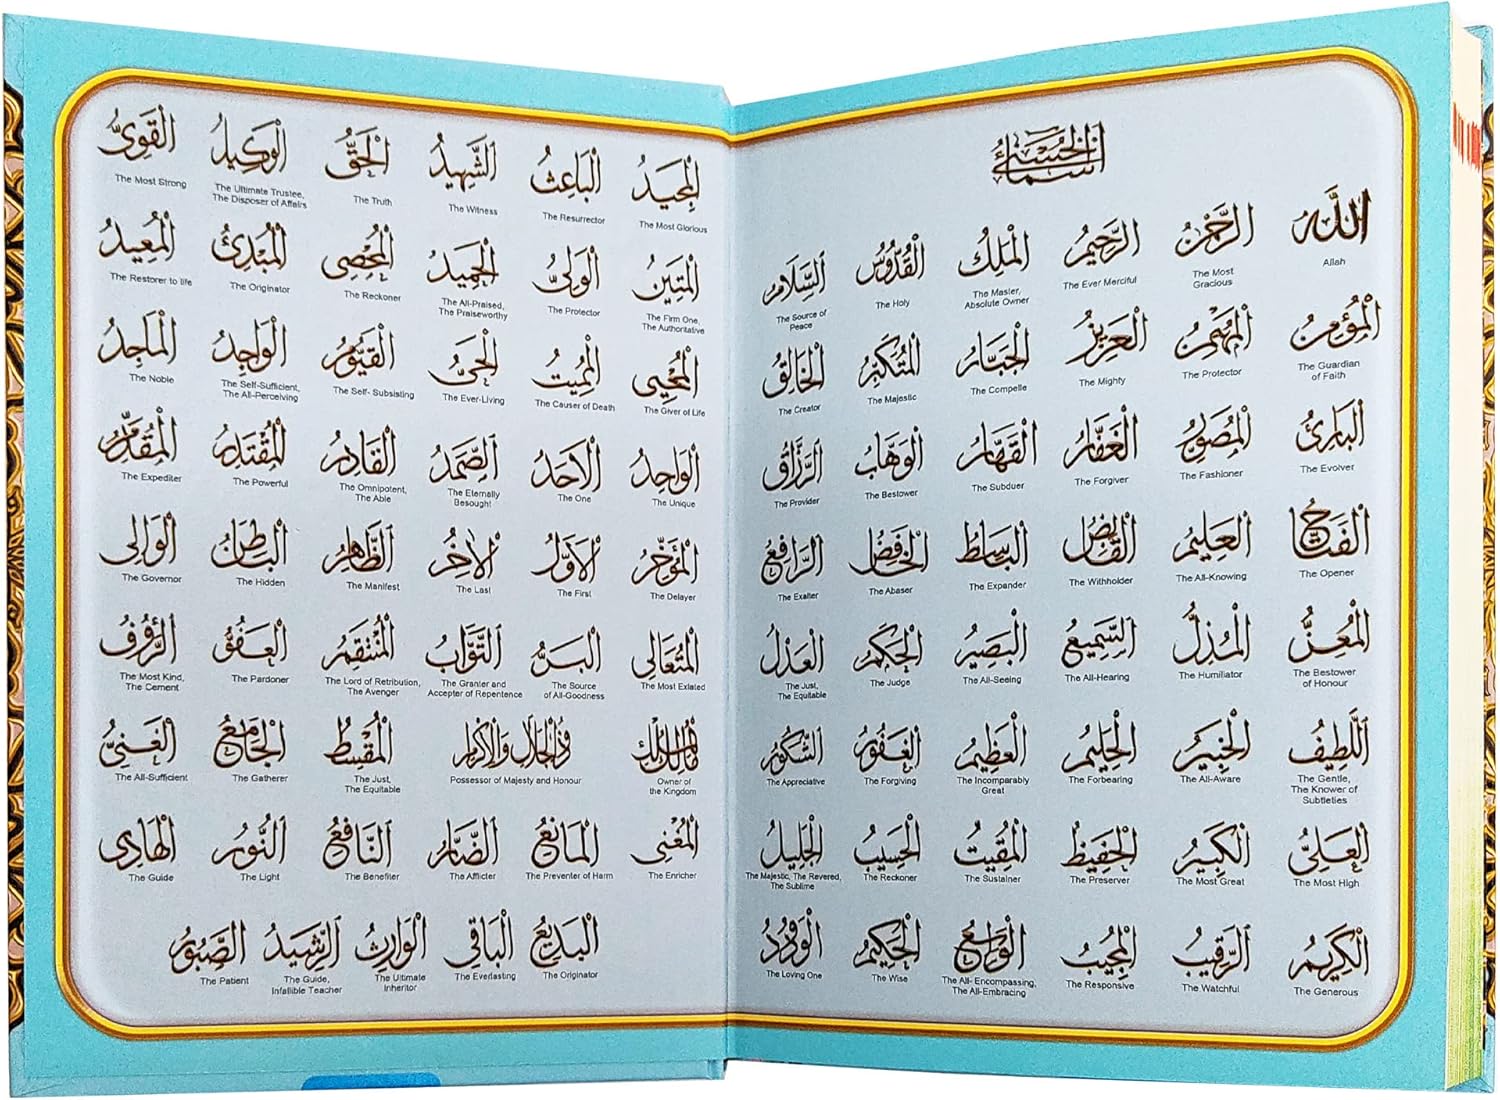 أسماء الحسنى
الله
Allah
الرَّحْمٰنُ
The Most
Gracious
الرَّحِيمُ
The Ever Merciful
الْمَلِكُ
The Master,
Absolute Owner
الْقُدُّوسُ
The Holy
السَّلَامُ
The Source of
Peace
الْمُؤْمِنُ
The Guardian
of Faith
الْمُهَيْمِنُ
The Protector
الْعَزِيزُ
The Mighty
الْجَبَّارُ
The Compelle
الْمُتَكَبِّرُ
The Majestic
الْخَالِقُ
The Creator
الْبَارِئُ
The Evolver
الْمُصَوِّرُ
The Fashioner
الْغَفَّارُ
The Forgiver
الْقَهَّارُ
The Subduer
الْوَهَّابُ
The Bestower
الرَّزَّاقُ
The Provider
الْفَتَّاحُ
The Opener
الْعَلِيمُ
The All-Knowing
الْقَابِضُ
The Withholder
الْبَاسِطُ
The Expander
الْخَافِضُ
The Abaser
الرَّافِعُ
The Exalter
الْمُعِزُّ
The Bestower
of Honour
الْمُذِلُّ
The Humiliator
السَّمِيعُ
The All-Hearing
الْبَصِيرُ
The All-Seeing
الْحَكَمُ
The Judge
الْعَدْلُ
The Just,
The Equitable
اللَّطِيفُ
The Gentle,
The Knower of
Subtleties
الْخَبِيرُ
The All-Aware
الْحَلِيمُ
The Forbearing
الْعَظِيمُ
The Incomparably
Great
الْغَفُورُ
The Forgiving
الشَّكُورُ
The Appreciative
الْعَلِيُّ
The Most High
الْكَبِيرُ
The Most Great
الْحَفِيظُ
The Preserver
الْمُقِيتُ
The Sustainer
الْحَسِيبُ
The Reckoner
الْجَلِيلُ
The Majestic, The Revered,
The Sublime
الْكَرِيمُ
The Generous
الرَّقِيبُ
The Watchful
الْمُجِيبُ
The Responsive
الْوَاسِعُ
The All- Encompassing,
The All-Embracing
الْحَكِيمُ
The Wise
الْوَدُودُ
The Loving One
الْمَجِيدُ
The Most Glorious
الْبَاعِثُ
The Resurrector
الشَّهِيدُ
The Witness
الْحَقُّ
The Truth
الْوَكِيلُ
The Ultimate Trustee,
The Disposer of Affairs
الْقَوِيُّ
The Most Strong
الْمَتِينُ
The Firm One,
The Authoritative
الْوَلِيُّ
The Protector
الْحَمِيدُ
The All-Praised,
The Praiseworthy
الْمُحْصِي
The Reckoner
الْمُبْدِئُ
The Originator
الْمُعِيدُ
The Restorer to life
الْمُحْيِي
The Giver of Life
الْمُمِيتُ
The Causer of Death
الْحَيُّ
The Ever-Living
الْقَيُّومُ
The Self- Subsisting
الْوَاجِدُ
The Self-Sufficient,
The All-Perceiving
الْمَاجِدُ
The Noble
الْوَاحِدُ
The Unique
الْأَحَدُ
The One
الصَّمَدُ
The Eternally
Besought
الْقَادِرُ
The Omnipotent,
The Able
الْمُقْتَدِرُ
The Powerful
الْمُقَدِّمُ
The Expediter
الْمُؤَخِّرُ
The Delayer
الْأَوَّلُ
The First
الْآخِرُ
The Last
الظَّاهِرُ
The Manifest
الْبَاطِنُ
The Hidden
الْوَالِي
The Governor
الْمُتَعَالِي
The Most Exlated
الْبَرُّ
The Source
of All-Goodness
التَّوَّابُ
The Granter and
Accepter of Repentence
الْمُنْتَقِمُ
The Lord of Retribution,
The Avenger
الْعَفُوُّ
The Pardoner
الرَّؤُوفُ
The Most Kind,
The Cement
مَالِكُ الْمُلْكِ
Owner of
the Kingdom
ذُو الْجَلَالِ وَالْإِكْرَامِ
Possessor of Majesty and Honour
الْمُقْسِطُ
The Just,
The Equitable
الْجَامِعُ
The Gatherer
الْغَنِيُّ
The All-Sufficient
الْمُغْنِي
The Enricher
الْمَانِعُ
The Preventer of Harm
الضَّارُّ
The Afflicter
النَّافِعُ
The Benefiter
النُّورُ
The Light
الْهَادِي
The Guide
الْبَدِيعُ
The Originator
الْبَاقِي
The Everlasting
الْوَارِثُ
The Ultimate
Inheritor
الرَّشِيدُ
The Guide,
Infallible Teacher
الصَّبُورُ
The Patient